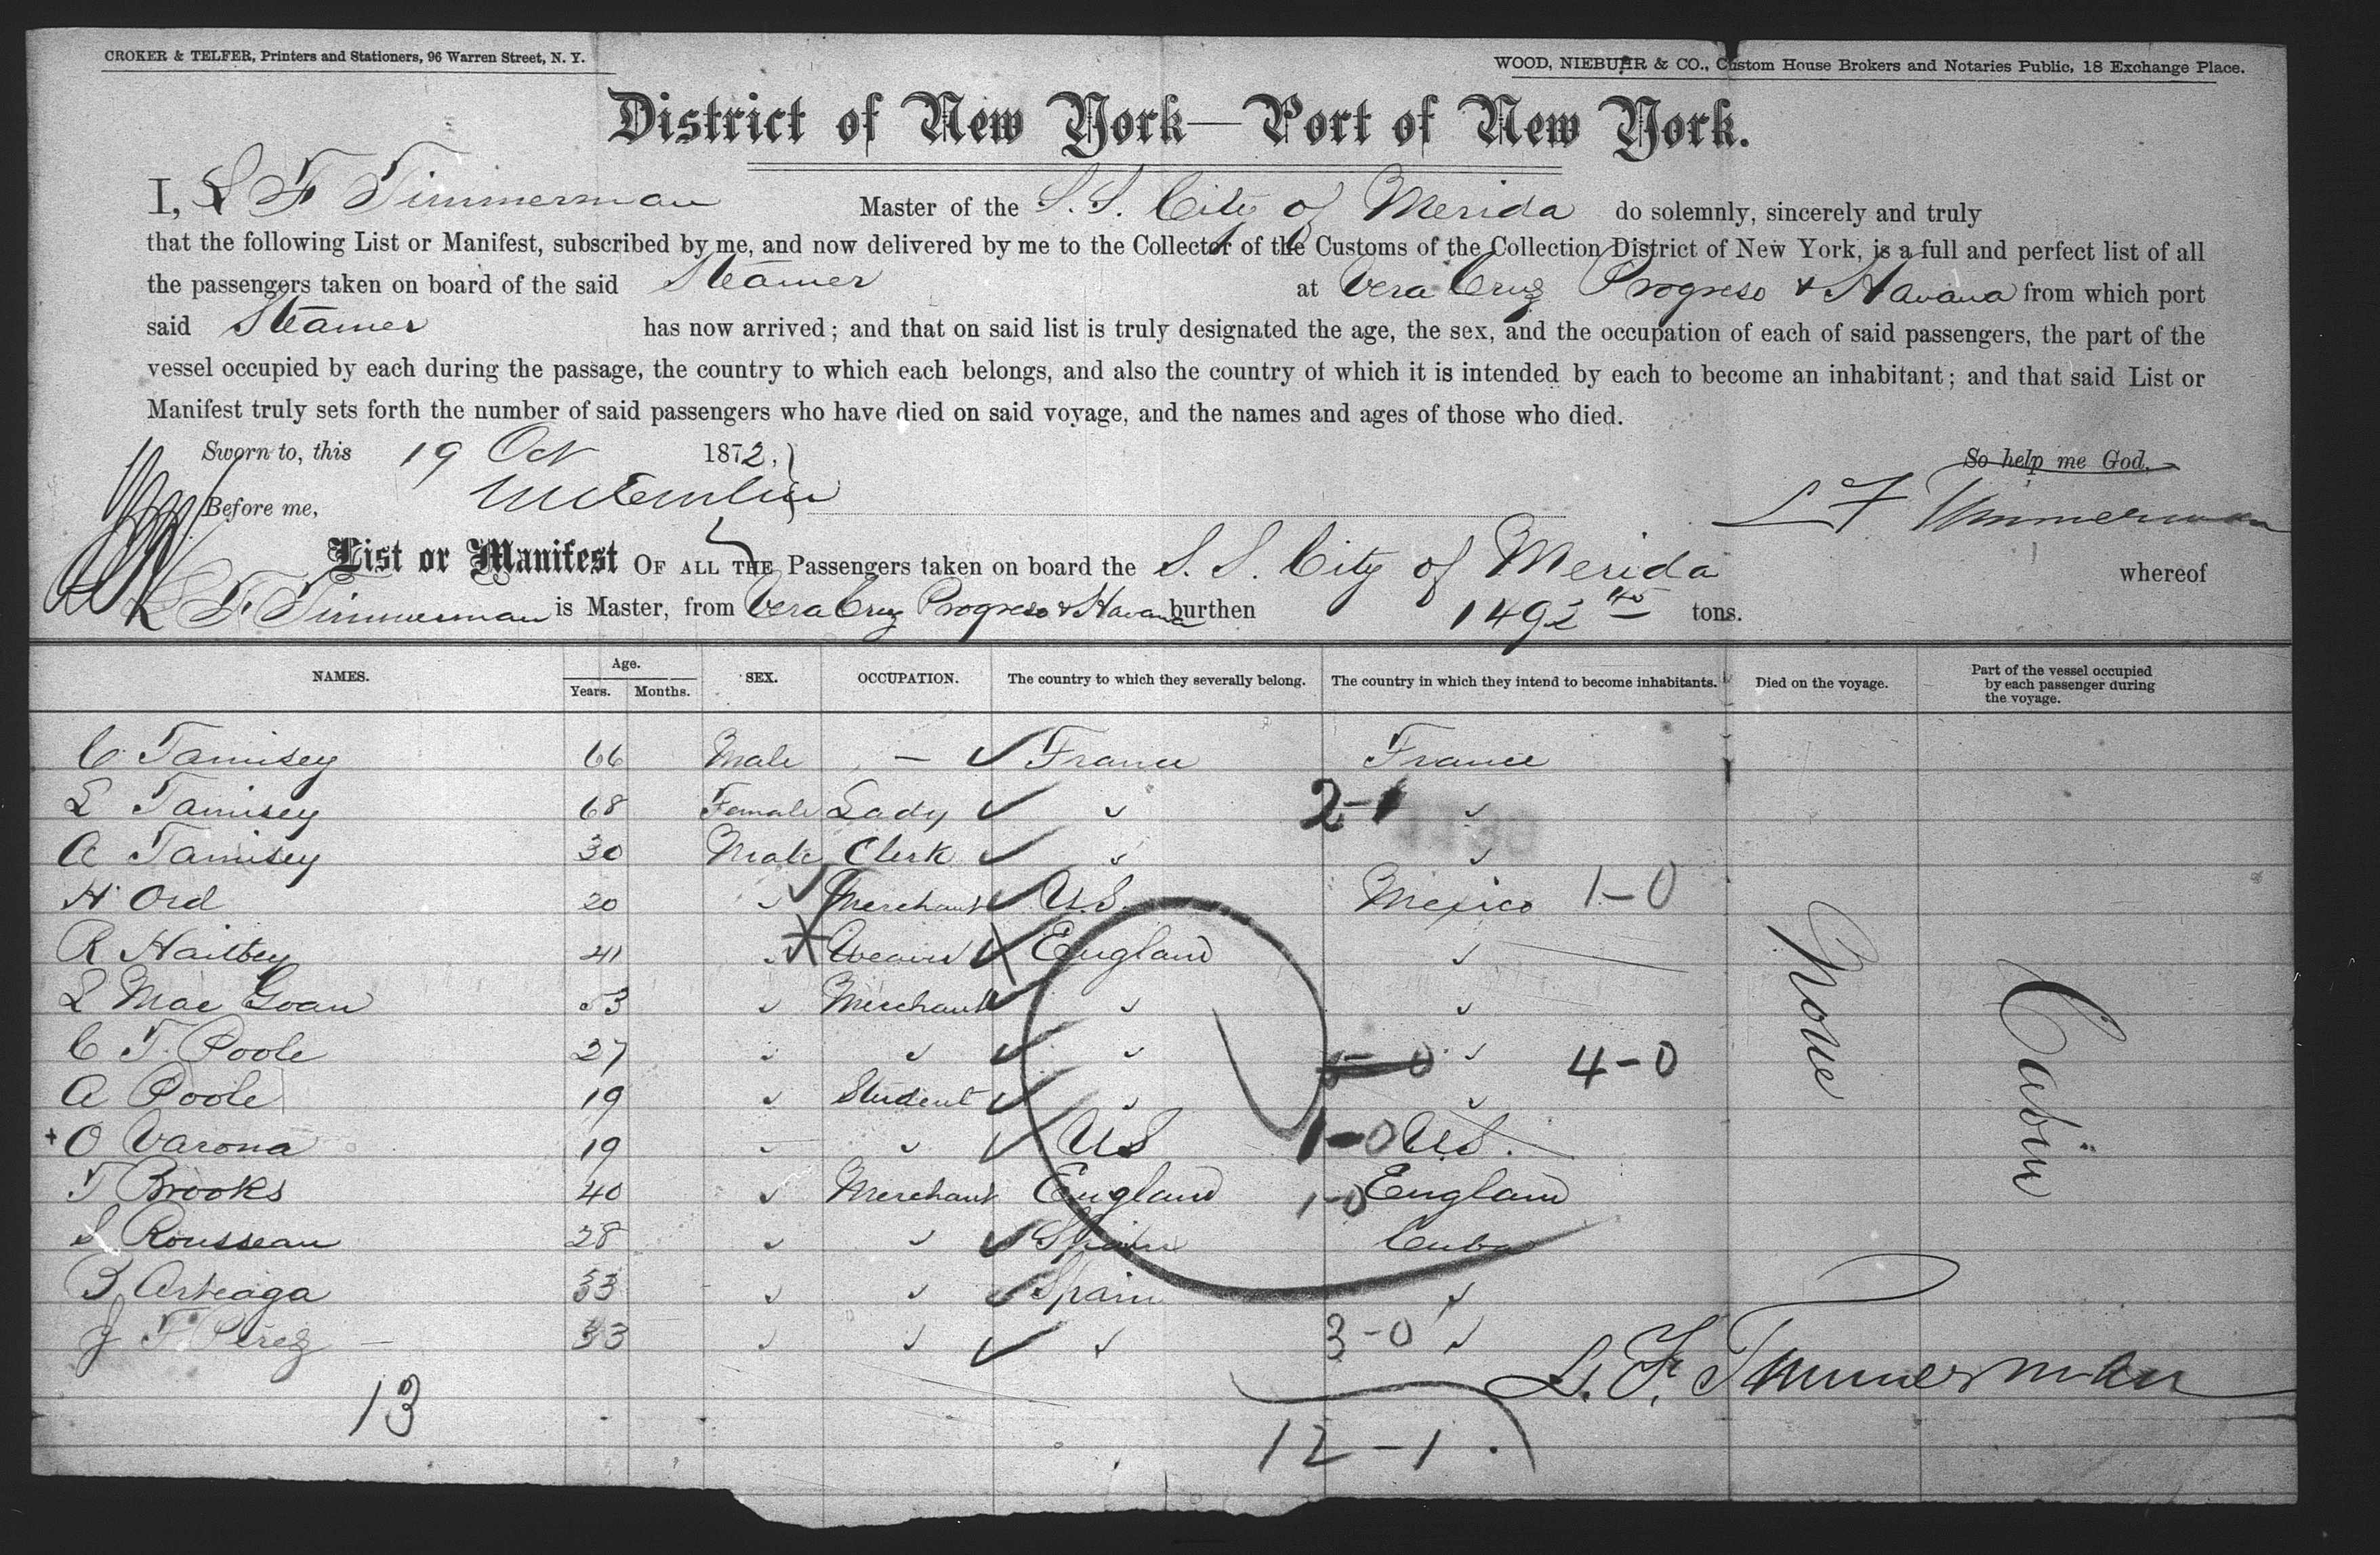 CROKER & TELFER, Printers and Stationers, 96 Warren Street, N. Y.
WOOD, NIEBUHR & CO., Custom House Brokers and Notaries Public, 18 Exchange Place.
District of New York—Port of New York.
I, L F Timmerman Master of the S. S. City of Merida do solemnly, sincerely and truly
that the following List or Manifest, subscribed by me, and now delivered by me to the Collector of the Customs of the Collection District of New York, is a full and perfect list of all
the passengers taken on board of the said Steamer at Vera Cruz Progreso & Havana from which port
said Steamer has now arrived; and that on said list is truly designated the age, the sex, and the occupation of each of said passengers, the part of the
vessel occupied by each during the passage, the country to which each belongs, and also the country of which it is intended by each to become an inhabitant; and that said List or
Manifest truly sets forth the number of said passengers who have died on said voyage, and the names and ages of those who died.
Sworn to, this 19 Oct 1872, So help me God.
Before me, L F Timmerman
List or Manifest OF ALL THE Passengers taken on board the S. S. City of Merida whereof
L F Timmerman is Master, from Vera Cruz Progreso & Havana burthen 1492 45 tons.
NAMES. Age. Years. Months. SEX. OCCUPATION. The country to which they severally belong. The country in which they intend to become inhabitants. Died on the voyage. Part of the vessel occupied by each passenger during the voyage.
C Tamisey 66 Male — ✓ France France
L Tamisey 68 Female Lady ✓ ✓ 2-1 ✓
A Tamisey 30 Male Clerk ✓ ✓ ✓
H Ord 20 ✓ Merchant ✓ U.S. Mexico 1-0
R Haitbey 41 ✓ Weaver ✓ England ✓
L Mac Goan 53 ✓ Merchant ✓ ✓ ✓
C T. Poole 27 ✓ ✓ ✓ ✓ ✓ 4-0
A Poole 19 ✓ Student ✓ ✓ ✓
+ O Varona 19 ✓ ✓ US 1-0 US.
T Brooks 40 ✓ Merchant England 1-0 England
S Rousseau 28 ✓ ✓ ✓ Spain Cuba
B Arteaga 33 ✓ ✓ ✓ Spain ✓
J F Perez 33 ✓ ✓ ✓ ✓ 3-0 ✓
None
Cabin
L. F. Timmerman
13
12-1.